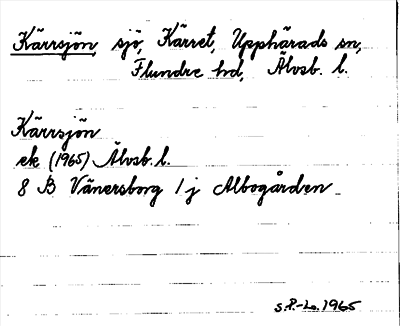 Kärrsjön, sjö, Kärret, Upphärads sn,
Flundre hd, Älvsb. l.
Kärrsjön
ek (1965) Älvsb. l.
8 B Vänersborg 1 j Albogården
S.P.-Lo. 1965